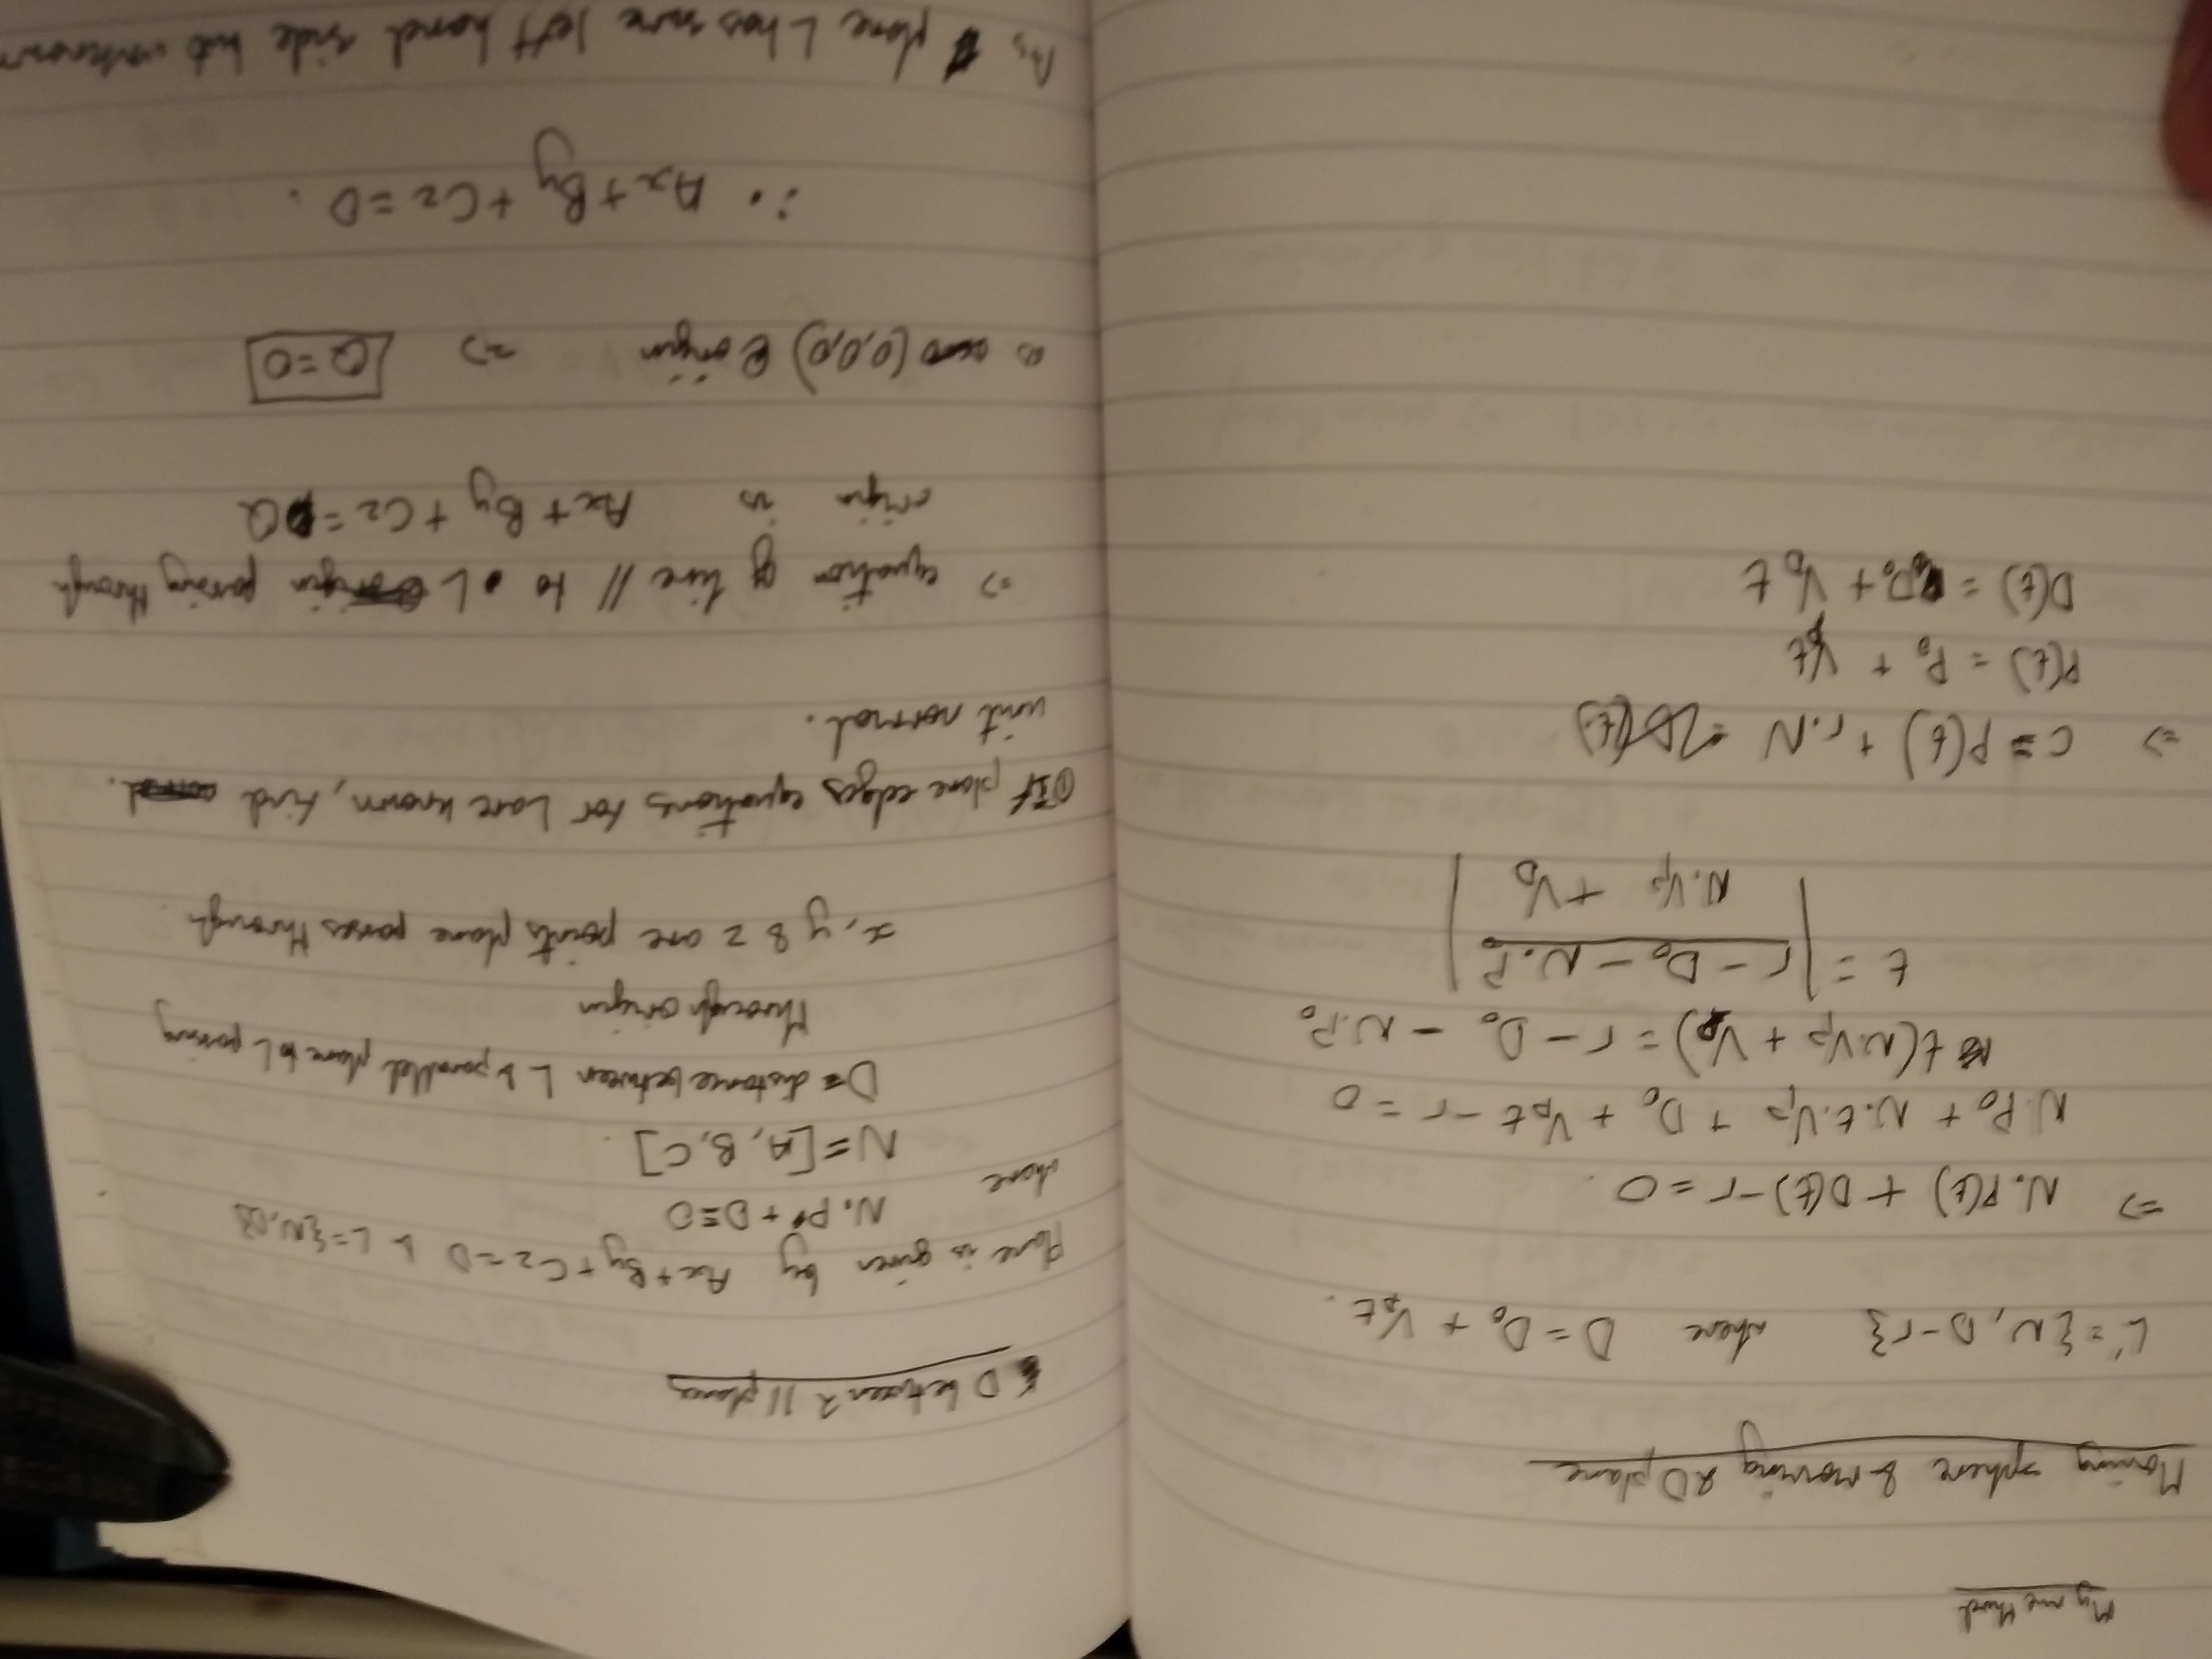 My method
Moving sphere & moving 2D plane
L' = {N, D-r} where D = D₀ + V_D t.
=> N.P(t) + D(t) - r = 0.
N.P₀ + N.t.Vp + D₀ + V_D t - r = 0
t(N.Vp + V_D) = r - D₀ - N.P₀
t = | r - D₀ - N.P₀
N.Vp + V_D |
=> C = P(t) + r.N
P(t) = P₀ + Vp t
D(t) = D₀ + V_D t
D between 2 // planes
Plane is given by Ax + By + Cz = D & L = {N, D}
N.P + D = 0
where
N = [A, B, C].
D = distance between L & parallel plane to L passing
through origin
x, y & z are points plane passes through.
① If plane edges equations for L are known, find
unit normal.
=> equation of line // to L passing through
origin is Ax + By + Cz = Q
as (0,0,0) @ origin => Q = 0
∴ Ax + By + Cz = 0.
As plane L has same left hand side but unknown